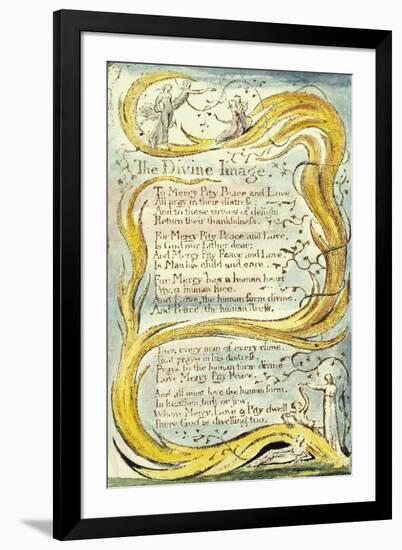 The Divine Image
To Mercy Pity Peace and Love.
All pray in their distress:
And to these virtues of delight
Return their thankfulness.
For Mercy Pity Peace and Love,
Is God our father dear:
And Mercy Pity Peace and Love,
Is Man his child and care.
For Mercy has a human heart
Pity, a human face:
And Love, the human form divine,
And Peace, the human dress.
Then every man of every clime,
That prays in his distress,
Prays to the human form divine
Love Mercy Pity Peace.
And all must love the human form,
In heathen, turk or jew.
Where Mercy, Love & Pity dwell,
There God is dwelling too.